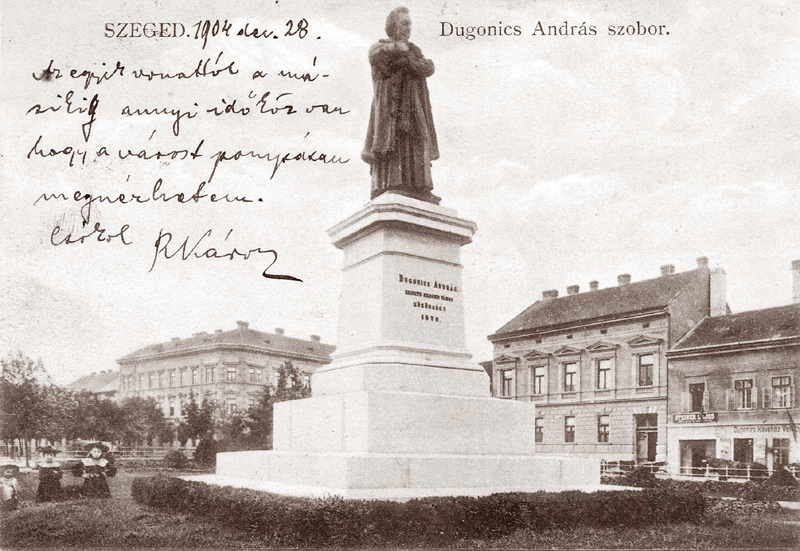 SZEGED. 1904 dec. 28.
Dugonics András szobor.
Az egyik vonattól a má-
sikig annyi időköz van
hogy a várost
megnézhetem.
Csókol RKároly
DUGONICS ANDRÁS.
SZEGED VÁROS
KÖZÖNSÉGE
1876.
STEINER L.
Dugonics Kávéház